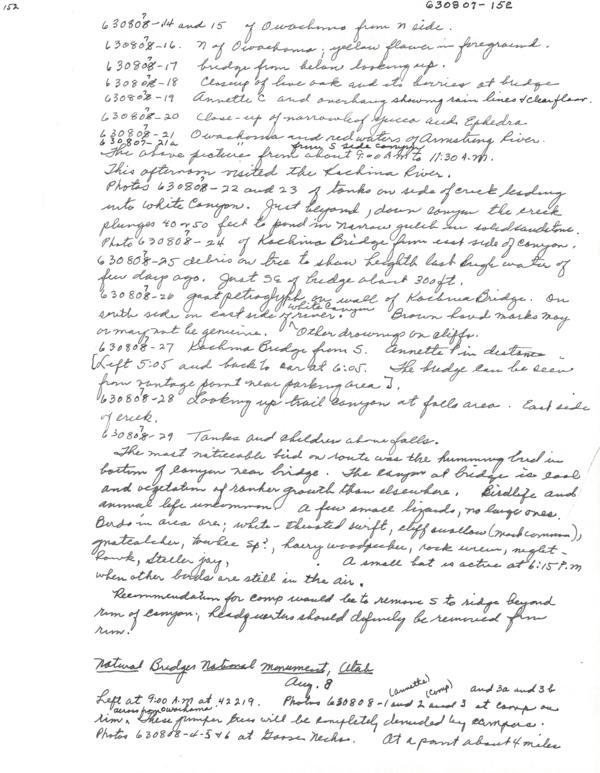 152
630807-152
630808-14 and 15 of Owachomo from N side.
630808-16. N of Owachomo; yellow flower in foreground.
630808-17 bridge from below looking up.
630808-18 Closeup of live oak and its berries at bridge
630808-19 Annette C and overhang showing rain lines & clear floor.
630808-20 Close-up of narrowleaf yucca and Ephedra
630808-21 Owachomo and red waters of Armstrong River.
630807-21a " from S side canyon
The above pictures from about 9:00 A.M. to 11:30 A.M.
This afternoon visited the Kachina River.
Photos 630808-22 and 23 of tanks on side of creek leading
into White Canyon. Just beyond, down canyon the creek
plunges 40 or 50 feet to pond in narrow gulch in solid sandstone.
Photo 630808-24 of Kachina Bridge from east side of canyon.
630808-25 debris on tree to show heighth last high water of
few days ago. Just SE of bridge about 300 ft.
630808-26 goat petroglyph on wall of Kachina Bridge. On
south side on east side of river. White Canyon Brown hand marks may
or may not be genuine. Other drawings on cliffs.
630808-27 Kachina Bridge from S. Annette P in distance
[Left 5:05 and back to car at 6:05. The bridge can be seen
from vantage point near parking area].
630808-28 Looking up trail canyon at falls area. East side
of creek.
630808-29 Tanks and children above falls.
The most noticeable bird on route was the hummingbird in
bottom of canyon near bridge. The canyon at bridge is cool
and vegetation of ranker growth than elsewhere. Birdlife and
animal life uncommon. A few small lizards, no large ones.
Birds in area are; white-throated swift, cliff swallow (most common),
gnatcatcher, towhee sp?, hairy woodpecker, rock wren, night-
hawk, Steller jay, . A small bat is active at 6:15 P.M
when other birds are still in the air.
Recommendation for camp would be to remove S to ridge beyond
rim of canyon; headquarters should definitely be removed from
rim.
Natural Bridges National Monument, Utah
Aug. 8
Left at 9:00 A.M at 42219. Photos 630808-1 (Annette) and 2 and 3 (camp) and 3a and 3b at camp on
rim across from Owachomo. These juniper trees will be completely denuded by campers.
Photos 630808-4-5 & 6 at Goosenecks. At a point about 4 miles